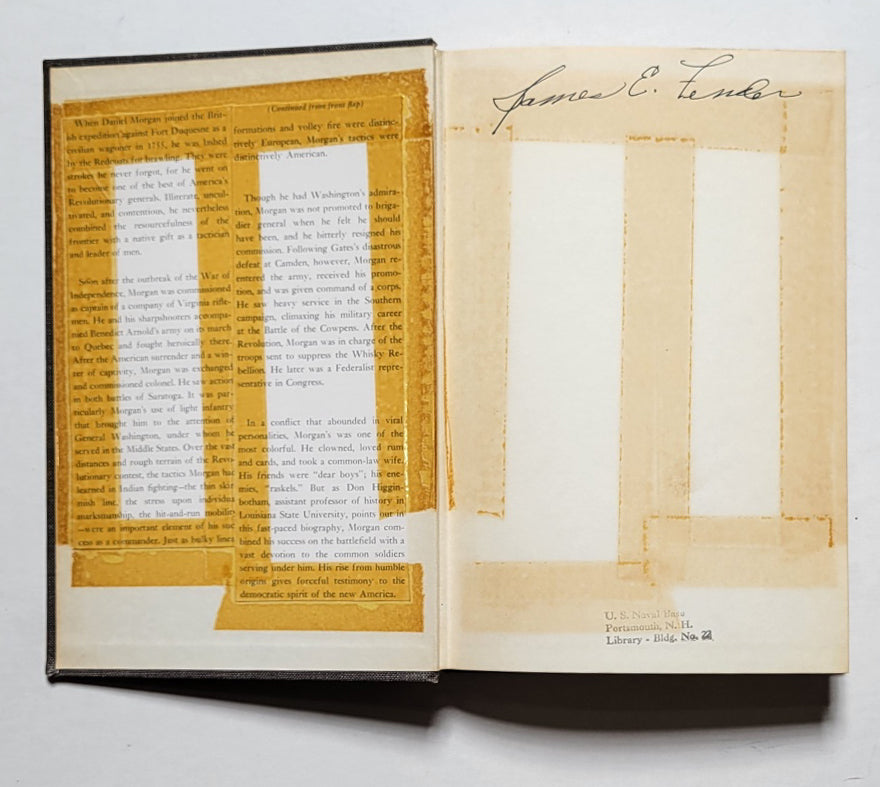 When Daniel Morgan joined the Brit-
ish expedition against Fort Duquesne as a
civilian wagoner in 1755, he was lashed
by the Redcoats for brawling. They were
strokes he never forgot, for he went on
to become one of the best of America's
Revolutionary generals. Illiterate, uncul-
tivated, and contentious, he nevertheless
combined the resourcefulness of the
frontier with a native gift as a tactician
and leader of men.
Soon after the outbreak of the War of
Independence, Morgan was commissioned
as captain of a company of Virginia rifle-
men. He and his sharpshooters accompa-
nied Benedict Arnold's army on its march
to Quebec and fought heroically there.
After the American surrender and a win-
ter of captivity, Morgan was exchanged
and commissioned colonel. He saw action
in both battles of Saratoga. It was par-
ticularly Morgan's use of light infantry
that brought him to the attention of
General Washington, under whom he
served in the Middle States. Over the vast
distances and rough terrain of the Revo-
lutionary contest, the tactics Morgan had
learned in Indian fighting—the thin skir
mish line, the stress upon individua
marksmanship, the hit-and-run mobility
—were an important element of his suc
cess as a commander. Just as bulky lines
(Continued from front flap)
formations and volley fire were distinc-
tively European, Morgan's tactics were
distinctively American.
Though he had Washington's admira-
tion, Morgan was not promoted to briga-
dier general when he felt he should
have been, and he bitterly resigned his
commission. Following Gates's disastrous
defeat at Camden, however, Morgan re-
entered the army, received his promo-
tion, and was given command of a corps.
He saw heavy service in the Southern
campaign, climaxing his military career
at the Battle of the Cowpens. After the
Revolution, Morgan was in charge of the
troops sent to suppress the Whisky Re-
bellion. He later was a Federalist repre-
sentative in Congress.
In a conflict that abounded in viral
personalities, Morgan's was one of the
most colorful. He clowned, loved rum
and cards, and took a common-law wife.
His friends were "dear boys"; his ene-
mies, "raskels." But as Don Higgin-
botham, assistant professor of history in
Louisiana State University, points out in
this fast-paced biography, Morgan com-
bined his success on the battlefield with a
vast devotion to the common soldiers
serving under him. His rise from humble
origins gives forceful testimony to the
democratic spirit of the new America.
James E. Fender
U. S. Naval Base
Portsmouth, N. H.
Library - Bldg. No. 22